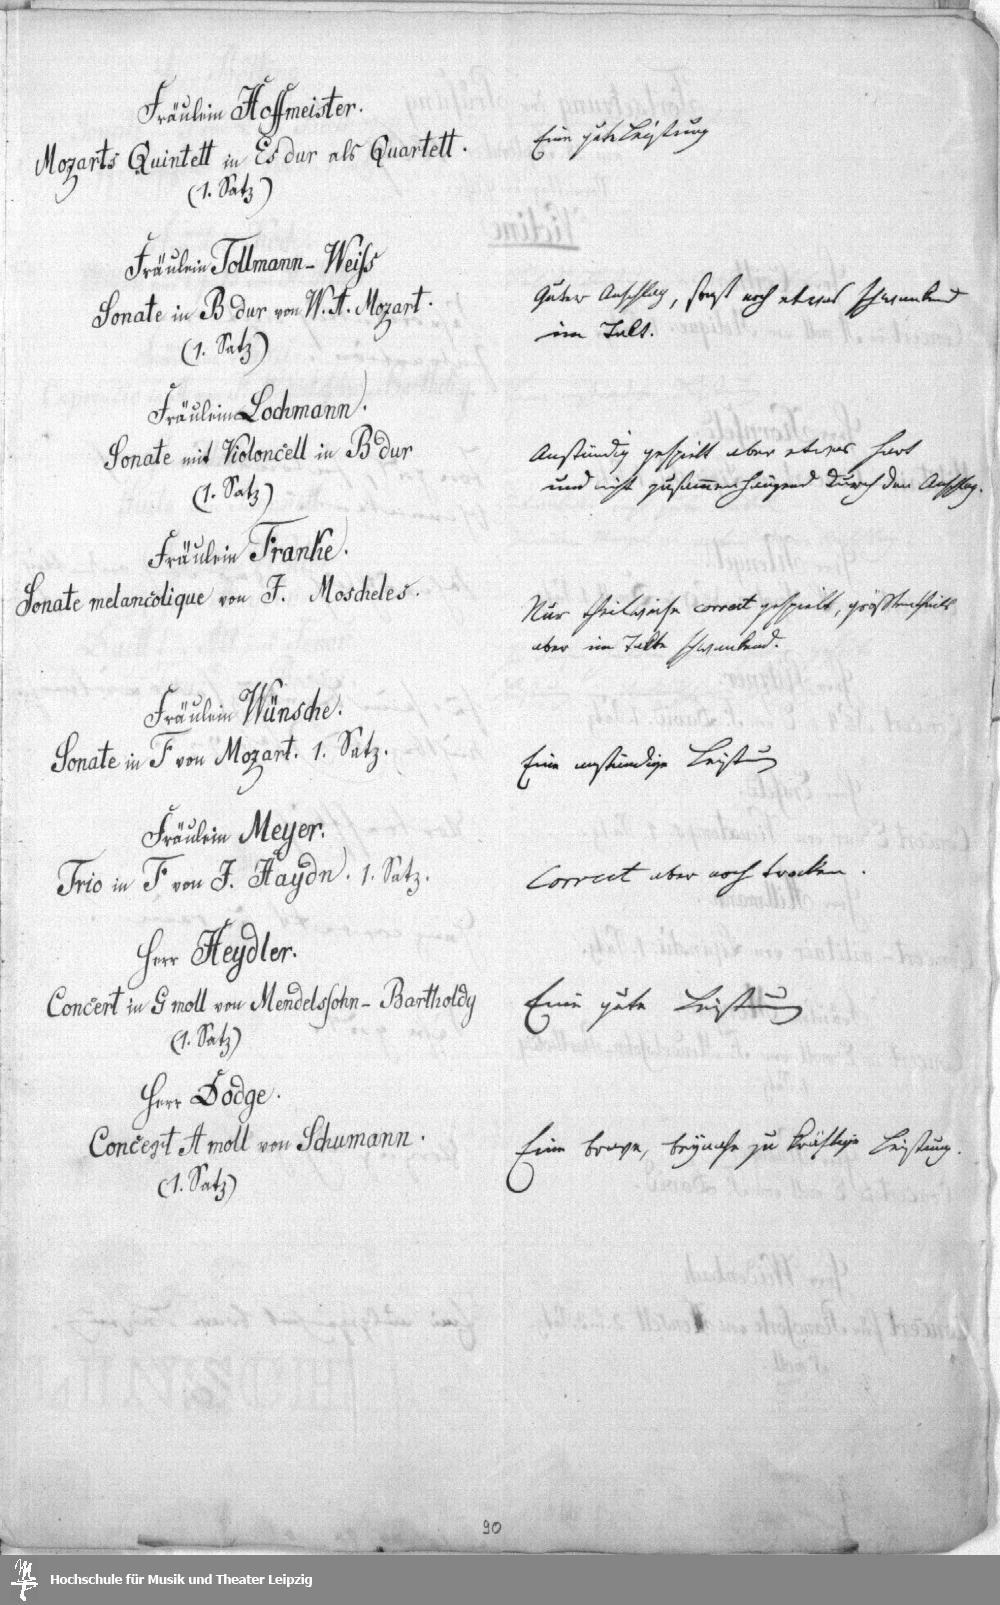 Fräulein Hoffmeister.
Mozarts Quintett in Es dur als Quartett.
(1. Satz)
Eine gute Leistung
Fräulein Tollmann-Weiss
Sonate in B dur von W. A. Mozart.
(1. Satz)
Guter Anschlag, sonst noch etwas schwankend
im Takt.
Fräulein Lochmann.
Sonate mit Violoncell in B dur
(1. Satz)
Anständig gespielt aber etwas hart
und nicht zusammenhängend durch den Anschlag.
Fräulein Franke.
Sonate melancolique von J. Moscheles.
Nur theilweise correct gespielt, größtentheils
aber im Takte schwankend.
Fräulein Wünsche.
Sonate in F von Mozart. 1. Satz.
Eine anständige Leistung
Fräulein Meyer.
Trio in F von J. Haydn. 1. Satz.
Correct aber noch trocken.
Herr Heydler.
Concert in G moll von Mendelssohn-Bartholdy
(1. Satz)
Eine gute Leistung
Herr Dodge.
Concert A moll von Schumann.
(1. Satz)
Eine brave, beynahe zu kräftige Leistung.
90
Hochschule für Musik und Theater Leipzig